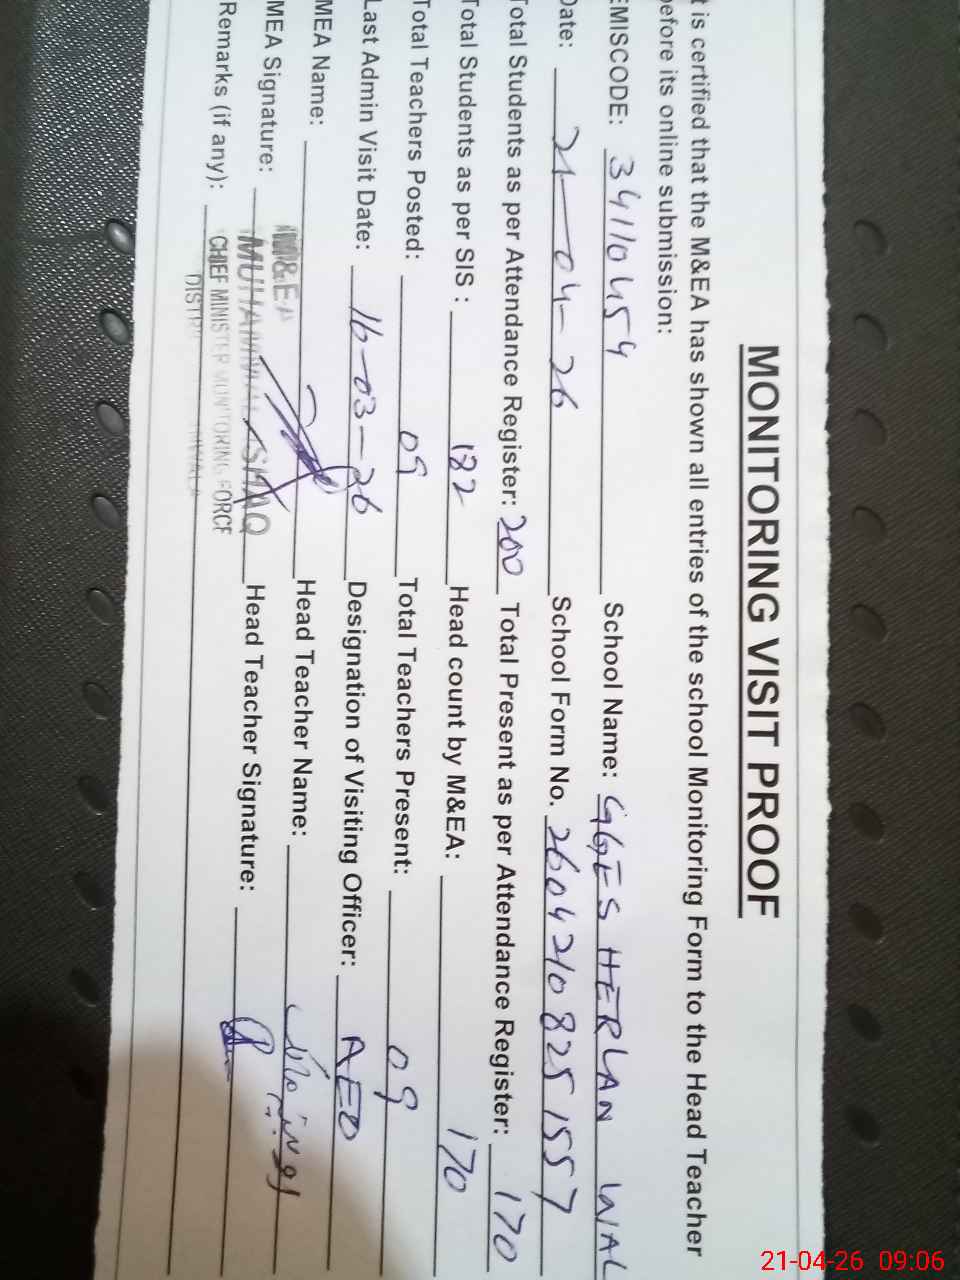 MONITORING VISIT PROOF
t is certified that the M&EA has shown all entries of the school Monitoring Form to the Head Teacher
before its online submission:
EMISCODE: 34110454 School Name: GGES HERLAN WAL
Date: 21-04-26 School Form No. 2604210825 1557
Total Students as per Attendance Register: 200 Total Present as per Attendance Register: 170
Total Students as per SIS : 182 Head count by M&EA: 170
Total Teachers Posted: 09 Total Teachers Present: 09
Last Admin Visit Date: 16-03-26 Designation of Visiting Officer: AEO
MEA Name: Head Teacher Name:
MEA Signature: Head Teacher Signature:
Remarks (if any):
M&EA
MUHAMMAD ISHAQ
CHIEF MINISTER MONITORING FORCE
21-04-26 09:06